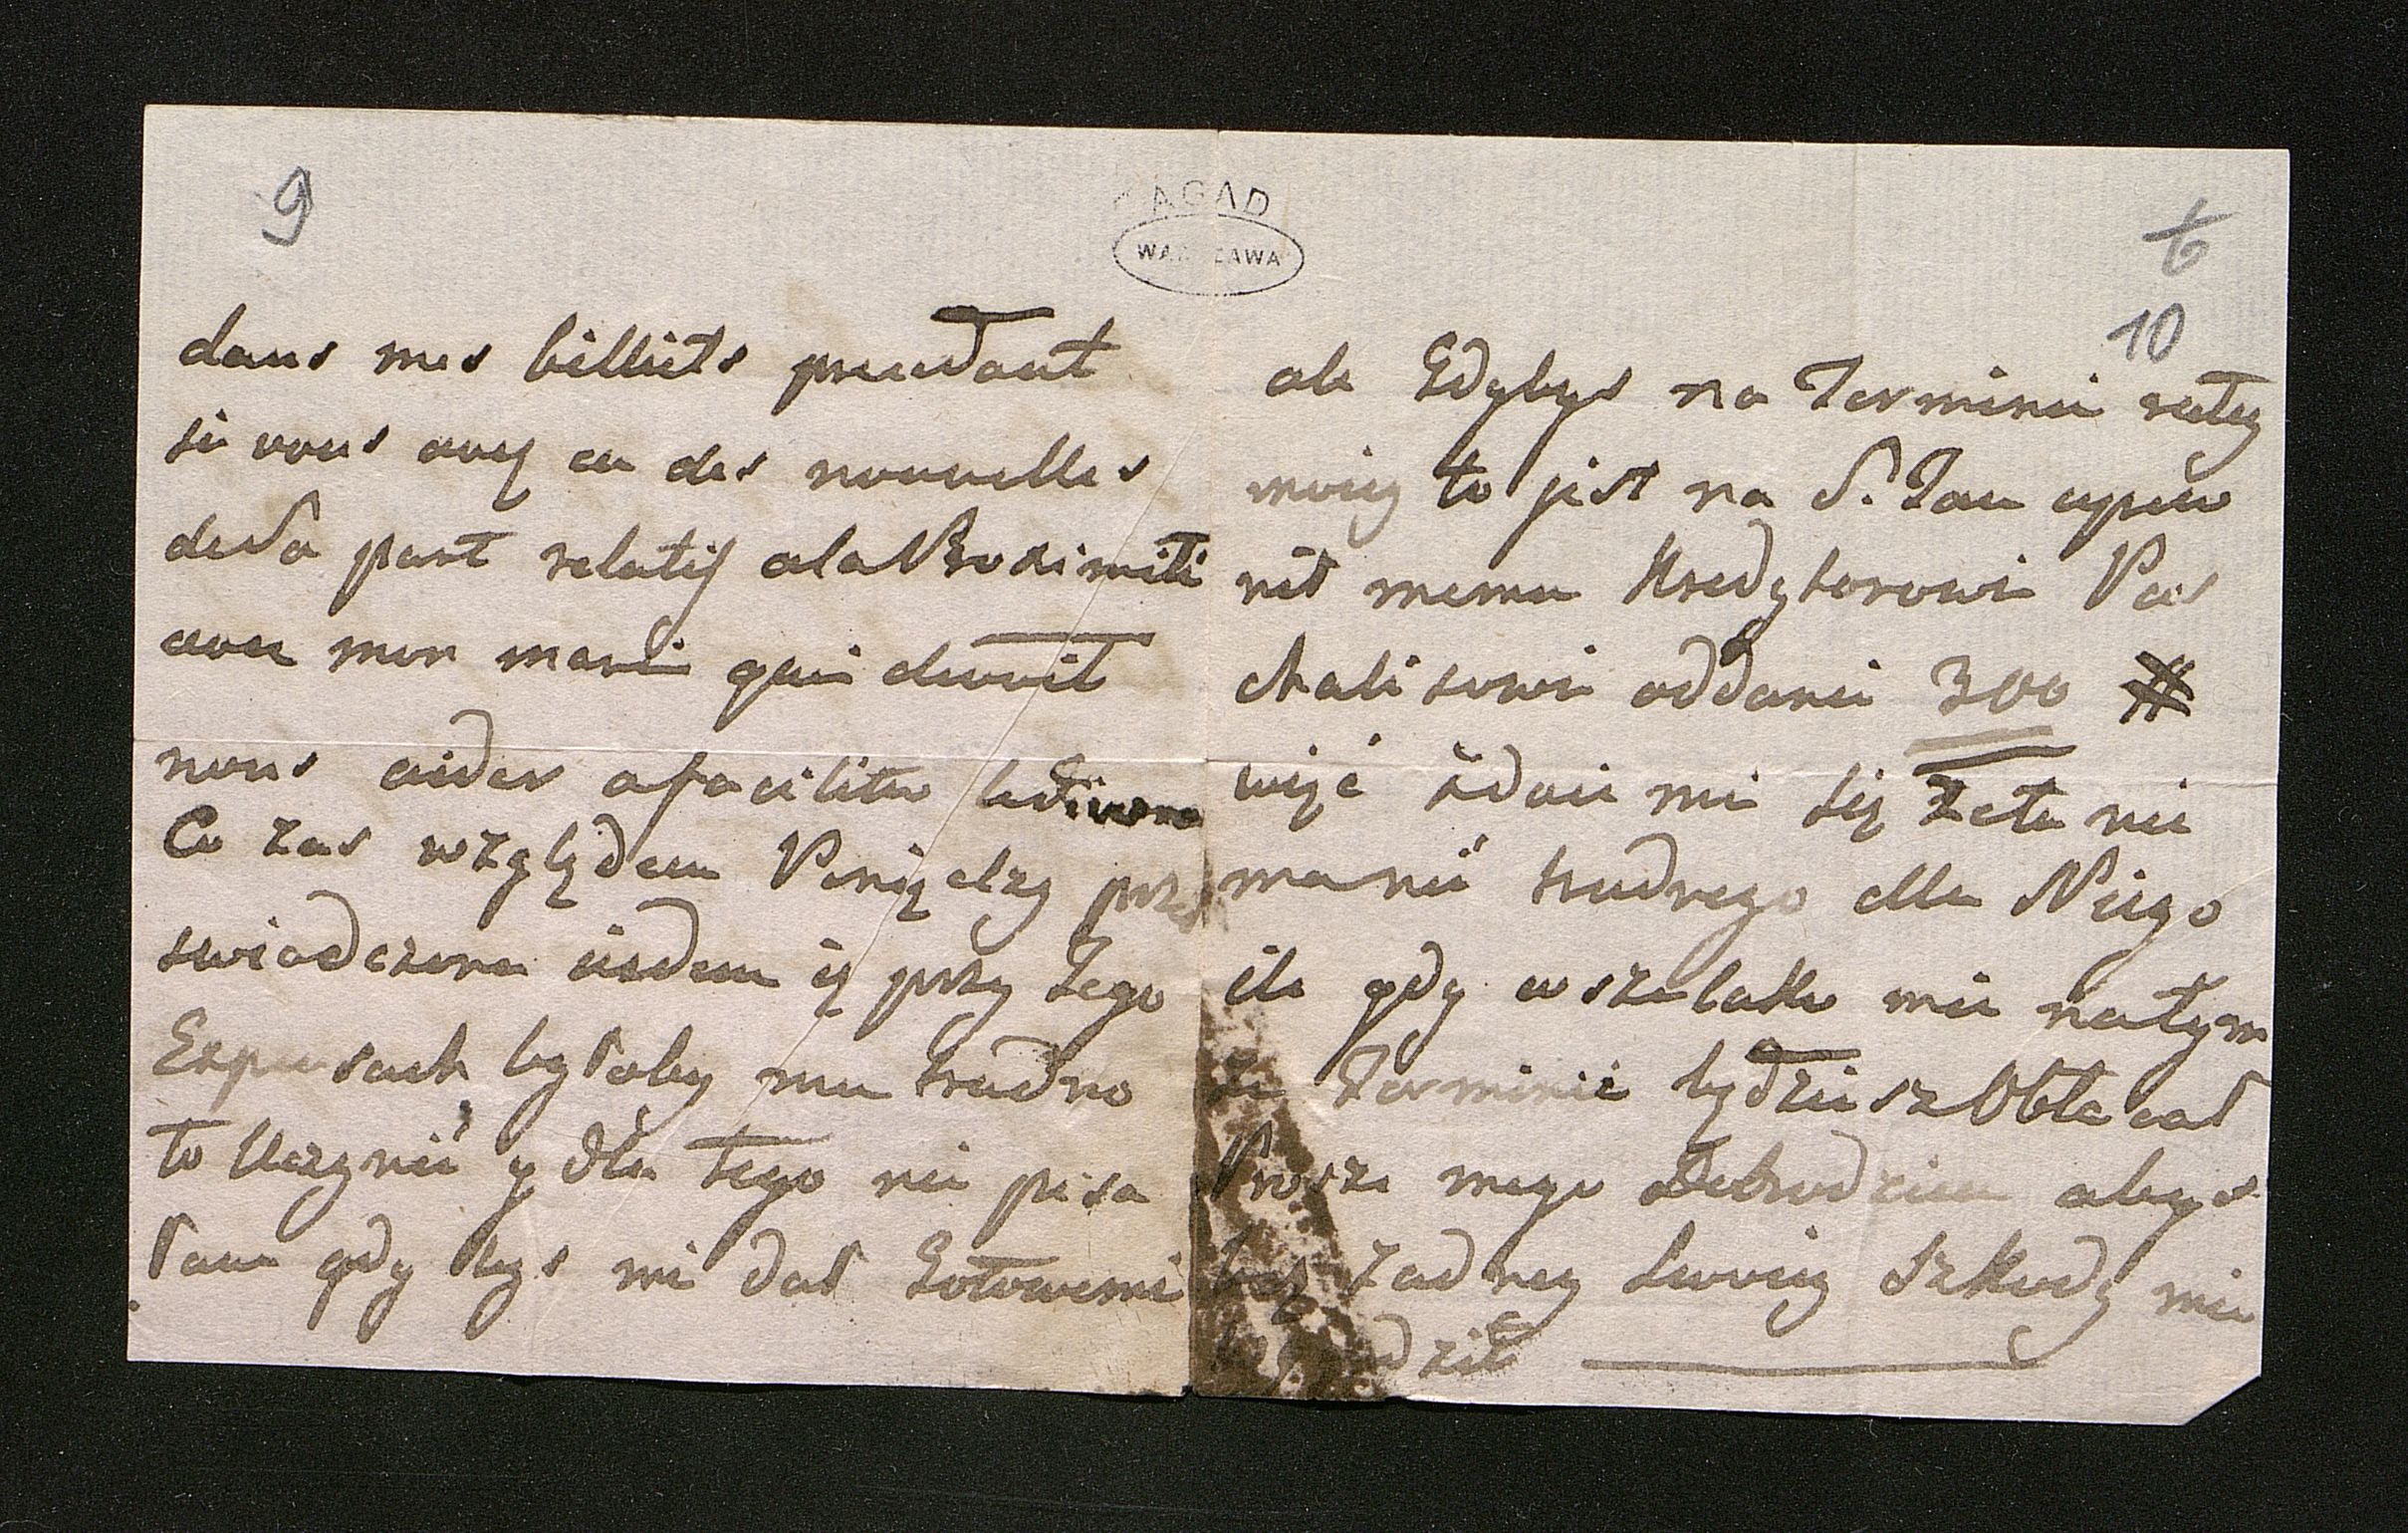 9
AGAD
WARSZAWA
6
10
dans mes billiets
si vous avez eu des nouvelles
de sa part relatif a la Proximité
avec mon mari qui devroit
nous aider a faciliter
Co zas względem Pieniędzy prze
swiadczona iestem iz przy Tego
Expensach byłoby mu trudno
to Uczynić y dla tego nie pisa
łam gdy bys mi dał Gotowemi
ale Gdybys na Terminie raty
moiey to jest na S. Jan upew
nił memu Kredytorowi Pas
chalisowi oddanie 300 #
więc zdaie mi się ze to nie
ma nić trudnego dla Niego
ile gdy wszelako mie na tym
ze Terminie będziesz Obliczał
Prosze mego Dobrodzieia abys
bez zadney swoiey Szkody mie